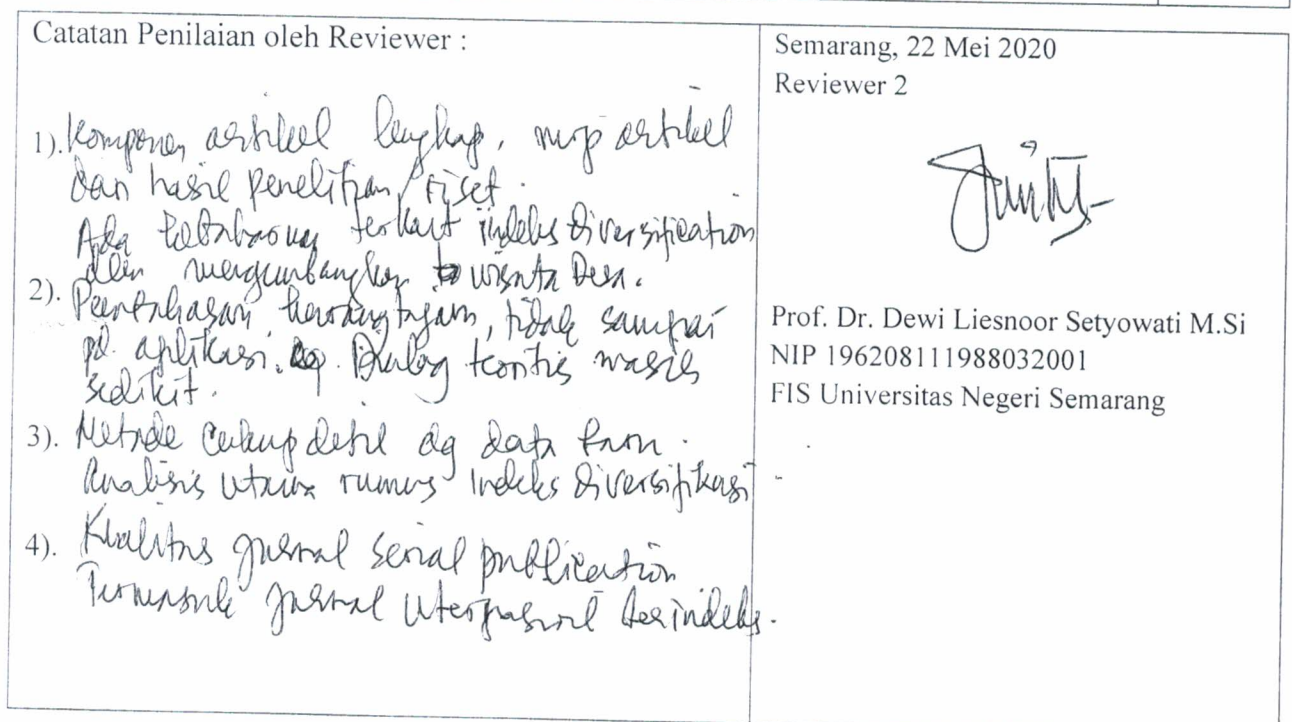 Catatan Penilaian oleh Reviewer :
1). Komponen artikel lengkap, artikel
dan hasil penelitian / riset.
Ada terkait indeks diversification
mengembangkan wisata Desa.
2). Pembahasan, tidak sampai
pd. aplikasi. Dialog teoritis masih
sedikit.
3). Metode cukup detil dg data
Analisis utama rumus indeks diversifikasi
4). Kualitas jurnal serial publication
Termasuk jurnal terindeks.
Semarang, 22 Mei 2020
Reviewer 2
Prof. Dr. Dewi Liesnoor Setyowati M.Si
NIP 196208111988032001
FIS Universitas Negeri Semarang